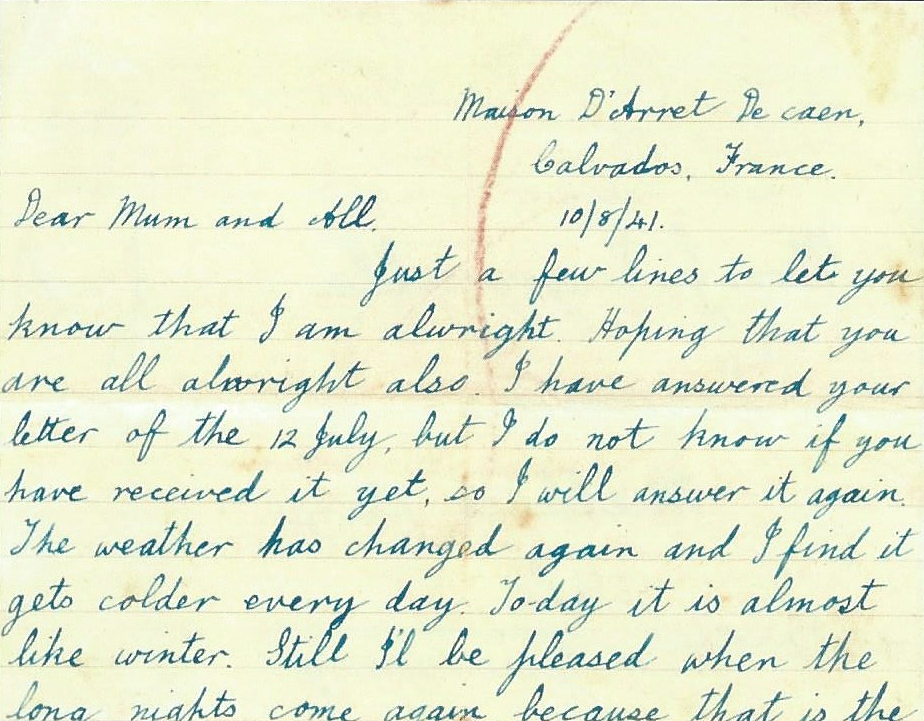 Maison D'Arret De caen,
Calvados, France.
Dear Mum and All.
10/8/41.
Just a few lines to let you
know that I am alwright. Hoping that you
are all alwright also. I have answered your
letter of the 12 July, but I do not know if you
have received it yet, so I will answer it again.
The weather has changed again and I find it
gets colder every day. To-day it is almost
like winter. Still I'l be pleased when the
long nights come again because that is the